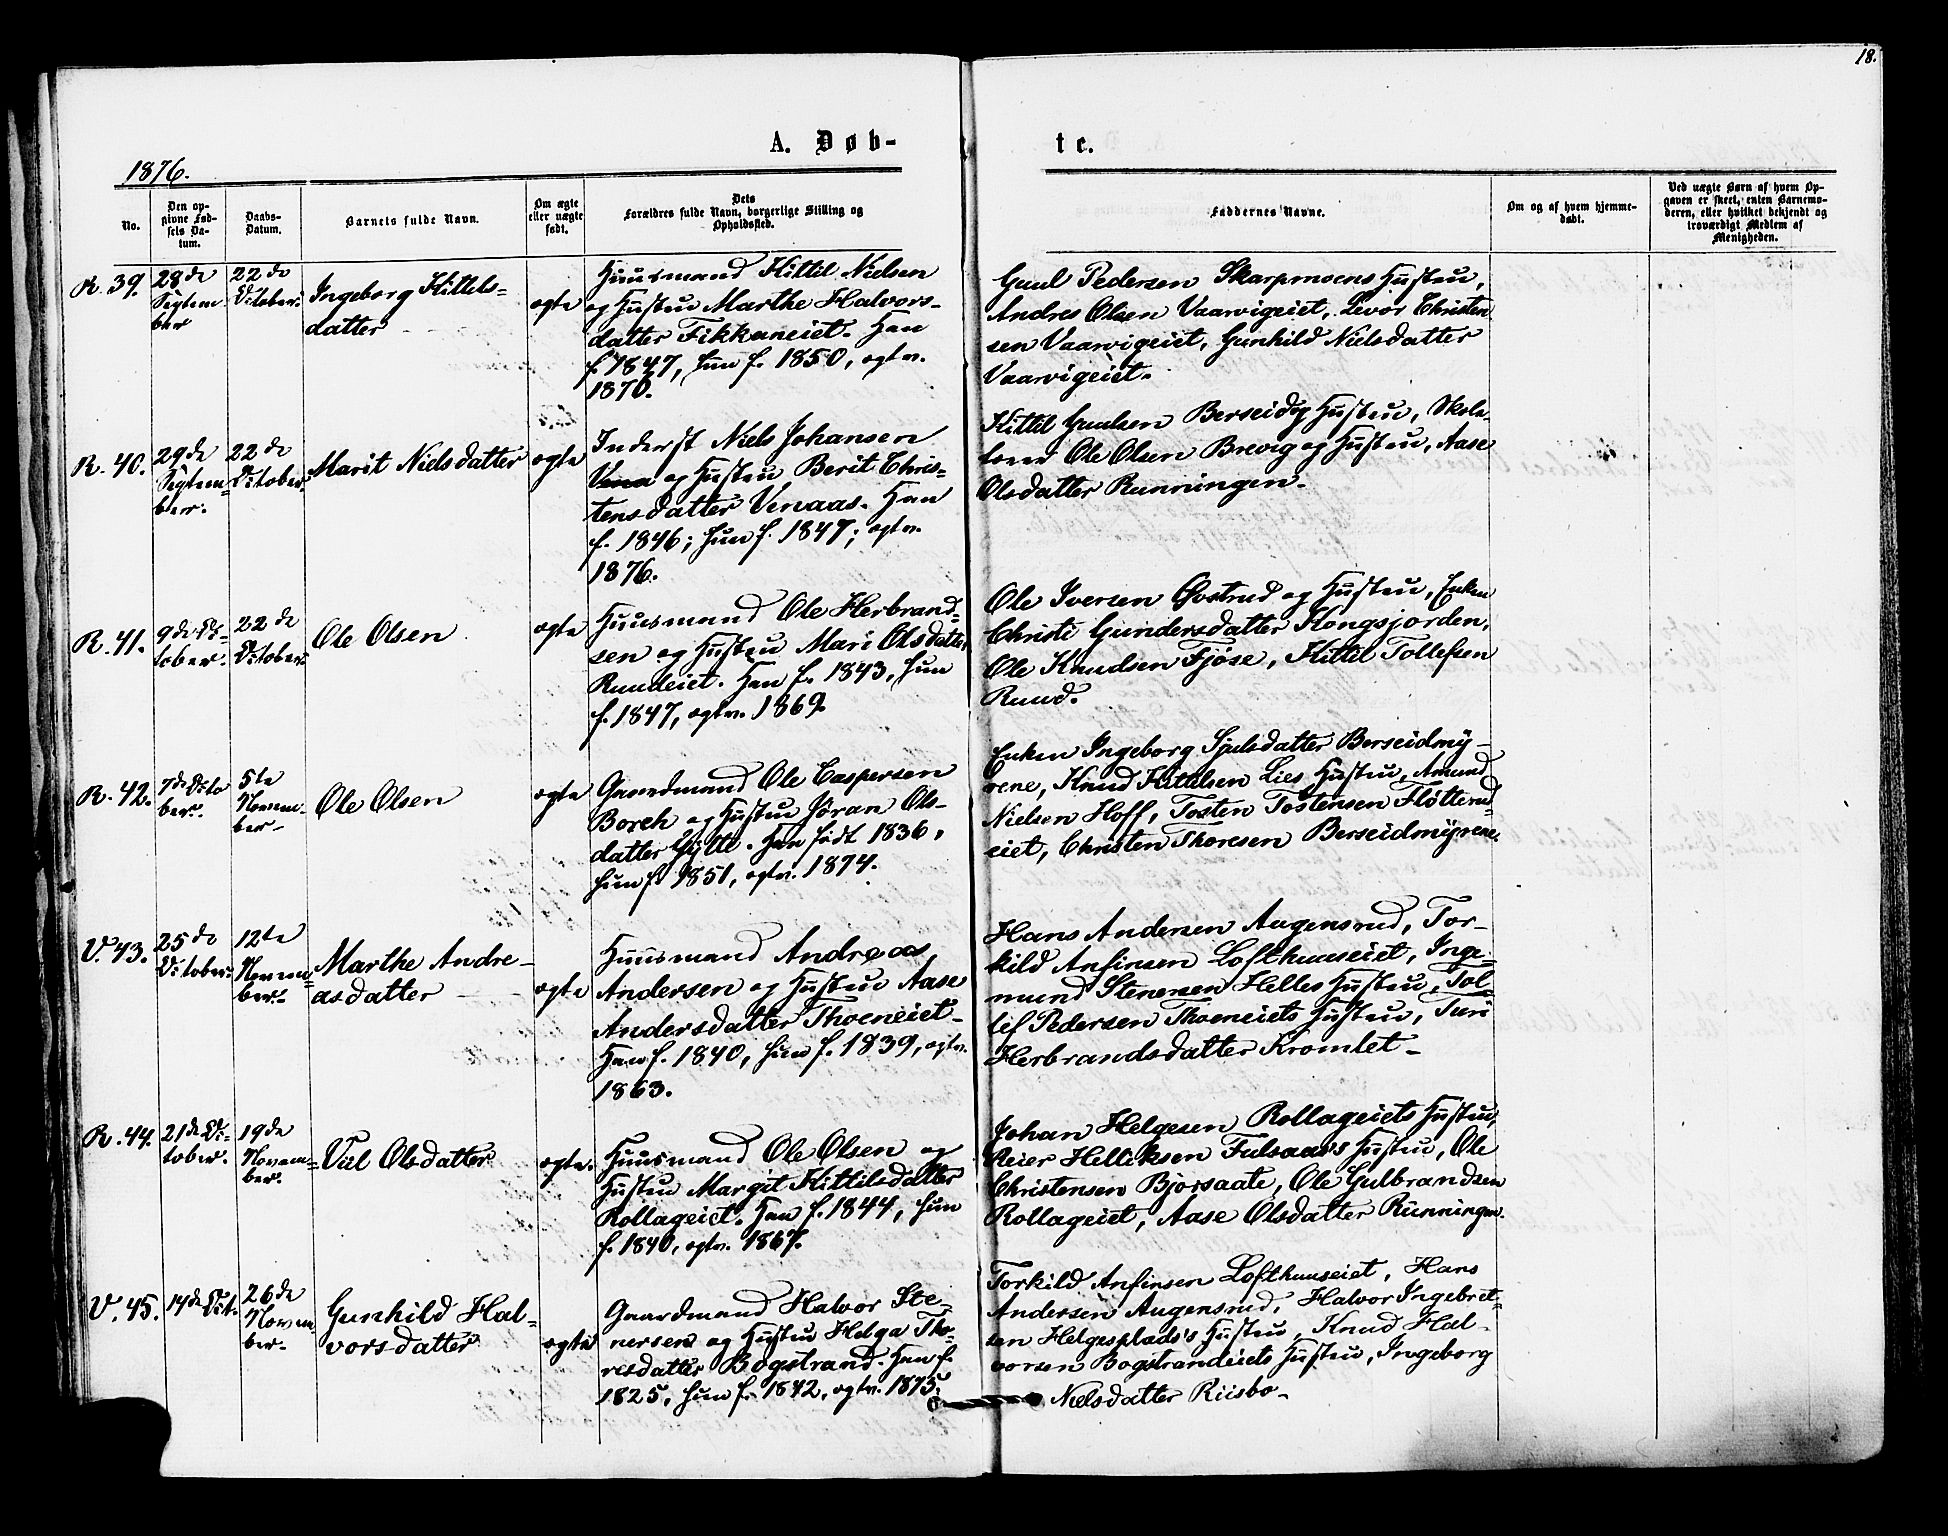 18.
A. Døb-
te.
1876.
No.
Den op-
givne Fød-
sels Da-
tum.
Daabs-
Datum.
Barnets fulde Navn.
Om ægte
eller uægte
født.
Dets
Forældres fulde Navn, borgerlige Stilling og
Opholdssted.
Faddernes Navne.
Om og af hvem hjemme-
døbt.
Ved uægte Børn af hvem Op-
gaven er skeet, enten Barnemo-
deren, eller hvilket bekjendt og
troværdigt Medlem af
Menigheden.
R. 39.
28de
Septem
ber
22de
October.
Ingeborg Kittils-
datter
ægte
Huusmand Kittil Nielsen
og Hustru Marthe Halvors-
datter Fikkaneiet. Han
f. 1847, hun f. 1850, ægtev.
1870.
Guul Pedersen Skarpmoens Hustru,
Andres Olsen Vaarvigeiet, Levor Christen
sen Vaarvigeiet, Gunhild Nielsdatter
Vaarvigeiet.
R. 40.
29de
Septem-
ber.
22de
October.
Marit Nielsdatter
ægte
Inderst Niels Johansen
Vena og Hustru Berit Chris-
tensdatter Venaas. Han
f. 1846; hun f. 1847; ægtev.
1876.
Kittil Guulsen Berseid og Hustru, Skole-
lærer Ole Olsen Brevig og Hustru, Aase
Olsdatter Runningen.
R. 41.
9de Oc-
tober.
22de
October.
Ole Olsen
ægte
Huusmand Ole Herbrand-
sen og Hustru Mari Olsdatter
Ruudeiet. Han f. 1843, hun
f. 1847, ægtev. 1869.
Ole Iversen Øvstrud og Hustru, Enken
Christi Gundersdatter Kongsjorden,
Ole Knudsen Fjøse, Kittil Tollefsen
Ruud.
R. 42.
7de Octo
ber.
5te
Novem-
ber.
Ole Olsen
ægte
Gaardmand Ole Caspersen
Borch og Hustru Jøran Ols-
datter Gytte. Han født 1836,
hun f. 1851, ægtv. 1874.
Enken Ingeborg Sjulsdatter Berseidmy-
rene, Knud Kittilsen Lies Hustru, Amund
Nielsen Hoff, Tosten Tostensen Fløtterud
eiet, Christen Thoresen Berseidmyrene.
V. 43.
25de
October.
12te
Novem-
ber.
Marthe Andre-
asdatter
ægte
Huusmand Andreas
Andersen og Hustru Aase
Andersdatter Thoeneiet.
Han f. 1840, hun f. 1839, ægtv.
1863.
Hans Andersen Augensrud, Tor-
kild Anfinsen Lofthuuseiet, Inge-
mund Stenersen Helles Hustru, Tol
lef Pedersen Thoeneiets Hustru, Turi
Herbrandsdatter Kromlet.
R. 44.
21de Oc-
tober.
19de
Novem-
ber.
Viel Olsdatter
ægte.
Huusmand Ole Olsen og
Hustru Margit Kittilsdatter
Rollageiet. Han f. 1844, hun
f. 1840, ægtev. 1867.
Johan Helgesen Rollageiets Hustru,
Reier Helliksen Fulsaas's Hustru, Ole
Christensen Bjorsaate, Ole Gulbrandsen
Rollageiet, Aase Olsdatter Runningen.
V. 45.
14de Oct.
26de
Novem-
ber.
Gunhild Hal-
vorsdatter
ægte
Gaardmand Halvor Ste-
nersen og Hustru Helga Tho-
resdatter Bogstrand. Han f.
1825, hun f. 1842, ægtv. 1875.
Torkild Anfinsen Lofthuuseiet, Hans
Andersen Augensrud, Halvor Ingebret-
sen Helgesplads's Hustru, Knud Hal-
vorsen Bogstrandeiets Hustru, Ingeborg
Nielsdatter Riisbo.